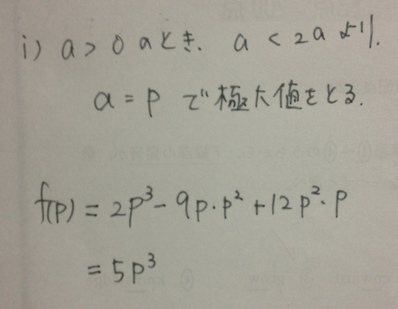 i) a > 0 のとき、 a < 2a より、
a = P で極大値をとる.
f(P) = 2P³ - 9P・P² + 12P²・P
= 5P³